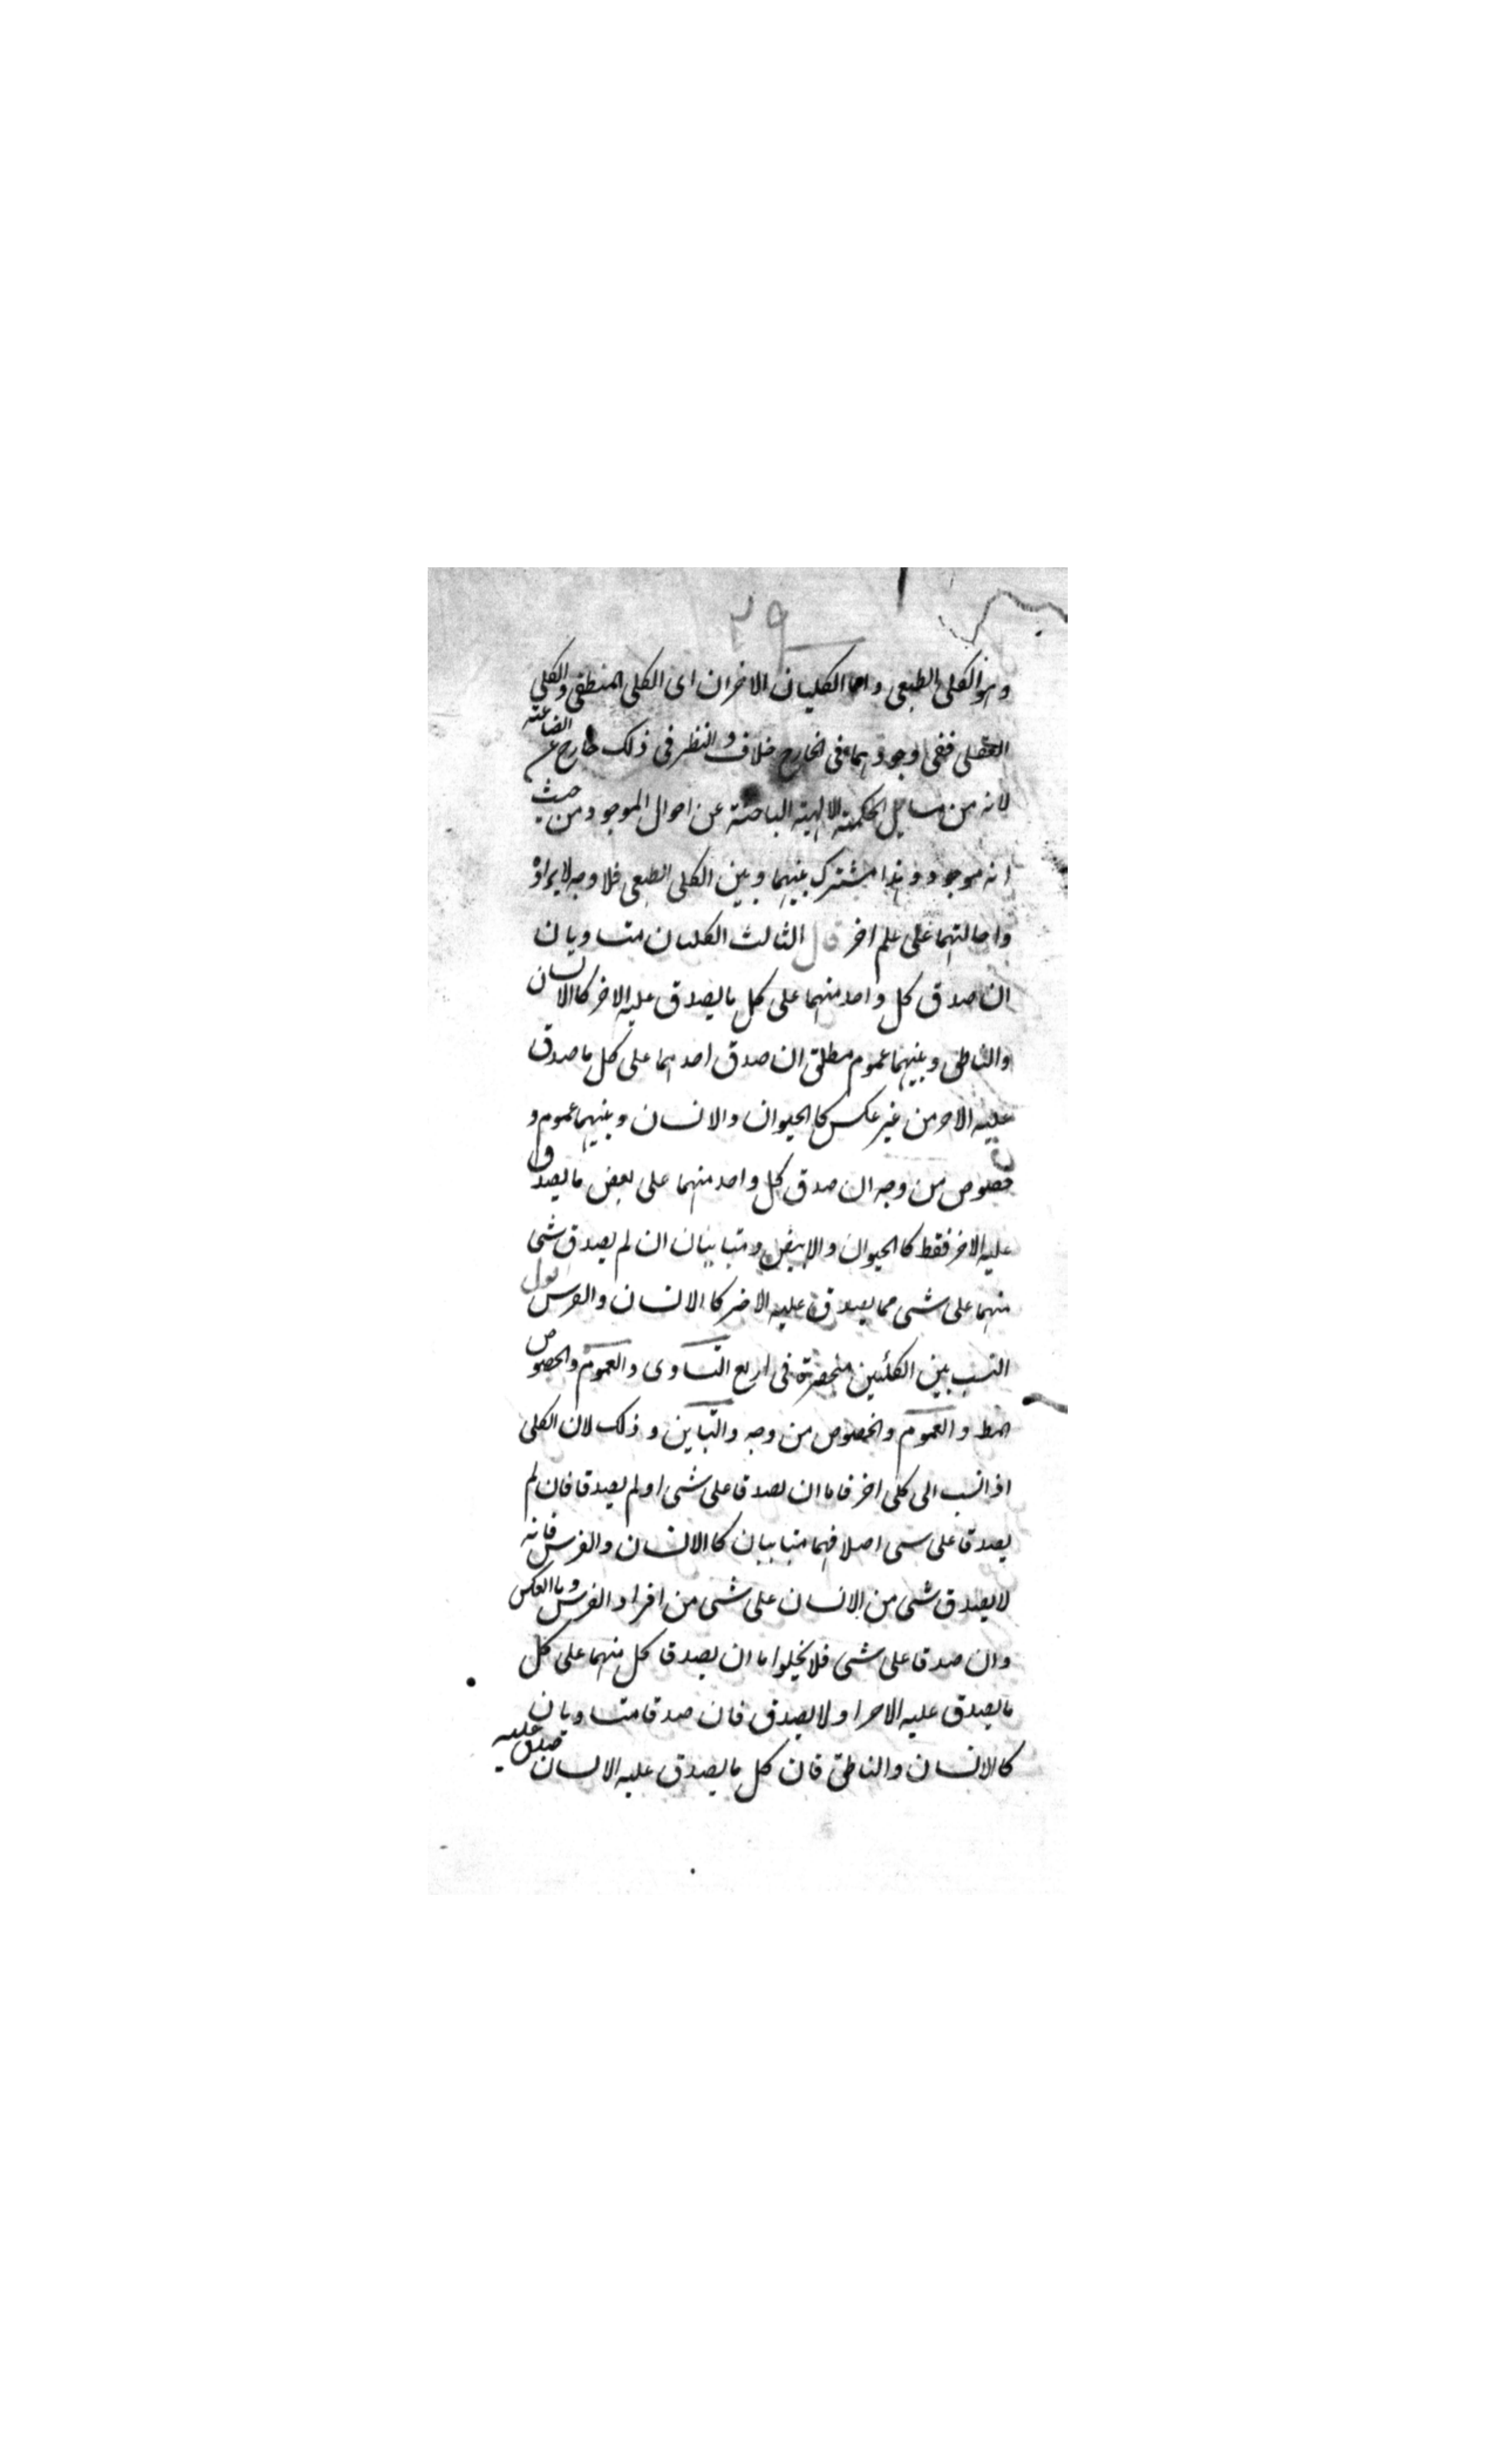 ٢٩
وهو الكلى الطبعى واما الكليان الاخران اى الكلى المنطقى والكلى
العقلى ففى وجودهما فى الخارج خلاف والنظر فى ذلك خارج عن الصناعة
لانه من مسايل الحكمة الالهية الباحثة عن احوال الموجود من حيث
انه موجود وهذا مشترك بينهما وبين الكلى الطبعى فلا وجه لايراده
واحالتهما على علم اخر قال الثالث الكليان متساويان
ان صدق كل واحد منهما على كل ما يصدق عليه الاخر كالانسان
والناطق وبينهما عموم مطلق ان صدق احدهما على كل ما صدق
عليه الاخر من غير عكس كالحيوان والانسان وبينهما عموم و
خصوص من وجه ان صدق كل واحد منهما على بعض ما يصدق
عليه الاخر فقط كالحيوان والابيض ومتباينان ان لم يصدق شى
منهما على شى مما يصدق عليه الاخر كالانسان والفرس اقول
النسب بين الكليين منحصرة فى اربع التساوى والعموم والخصوص
المط والعموم والخصوص من وجه والتباين وذلك لان الكلى
اذا نسب الى كلى اخر فاما ان يصدقا على شى او لم يصدقا فان لم
يصدقا على شى اصلا فهما متباينان كالانسان والفرس فانه
لا يصدق شى من الانسان على شى من افراد الفرس وبالعكس
وان صدقا على شى فلا يخلوا ما ان يصدقا كل منهما على كل
ما يصدق عليه الاخر او لا يصدق فان صدقا متساويان
كالانسان والناطق فان كل ما يصدق عليه الانسان صدق عليه